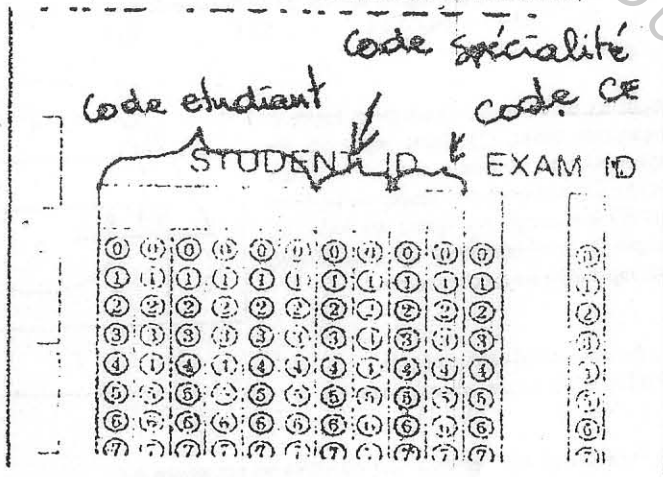 Code spécialité
Code etudiant
Code CE
STUDENT ID EXAM ID
0 0 0 0 0 0 0 0 0 0 0 0
1 1 1 1 1 1 1 1 1 1 1 1
2 2 2 2 2 2 2 2 2 2 2 2
3 3 3 3 3 3 3 3 3 3 3 3
4 4 4 4 4 4 4 4 4 4 4
5 5 5 5 5 5 5 5 5 5 5 5
6 6 6 6 6 6 6 6 6 6 6 6
7 7 7 7 7 7 7 7 7 7 7 7